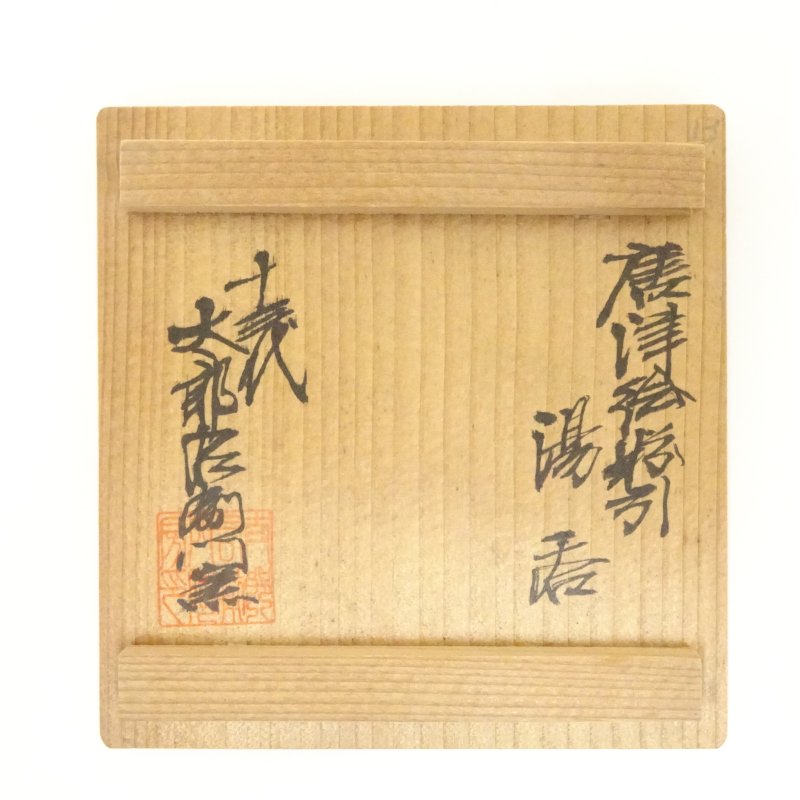 唐津絵粉引
湯呑
十三代
太郎右衛門窯